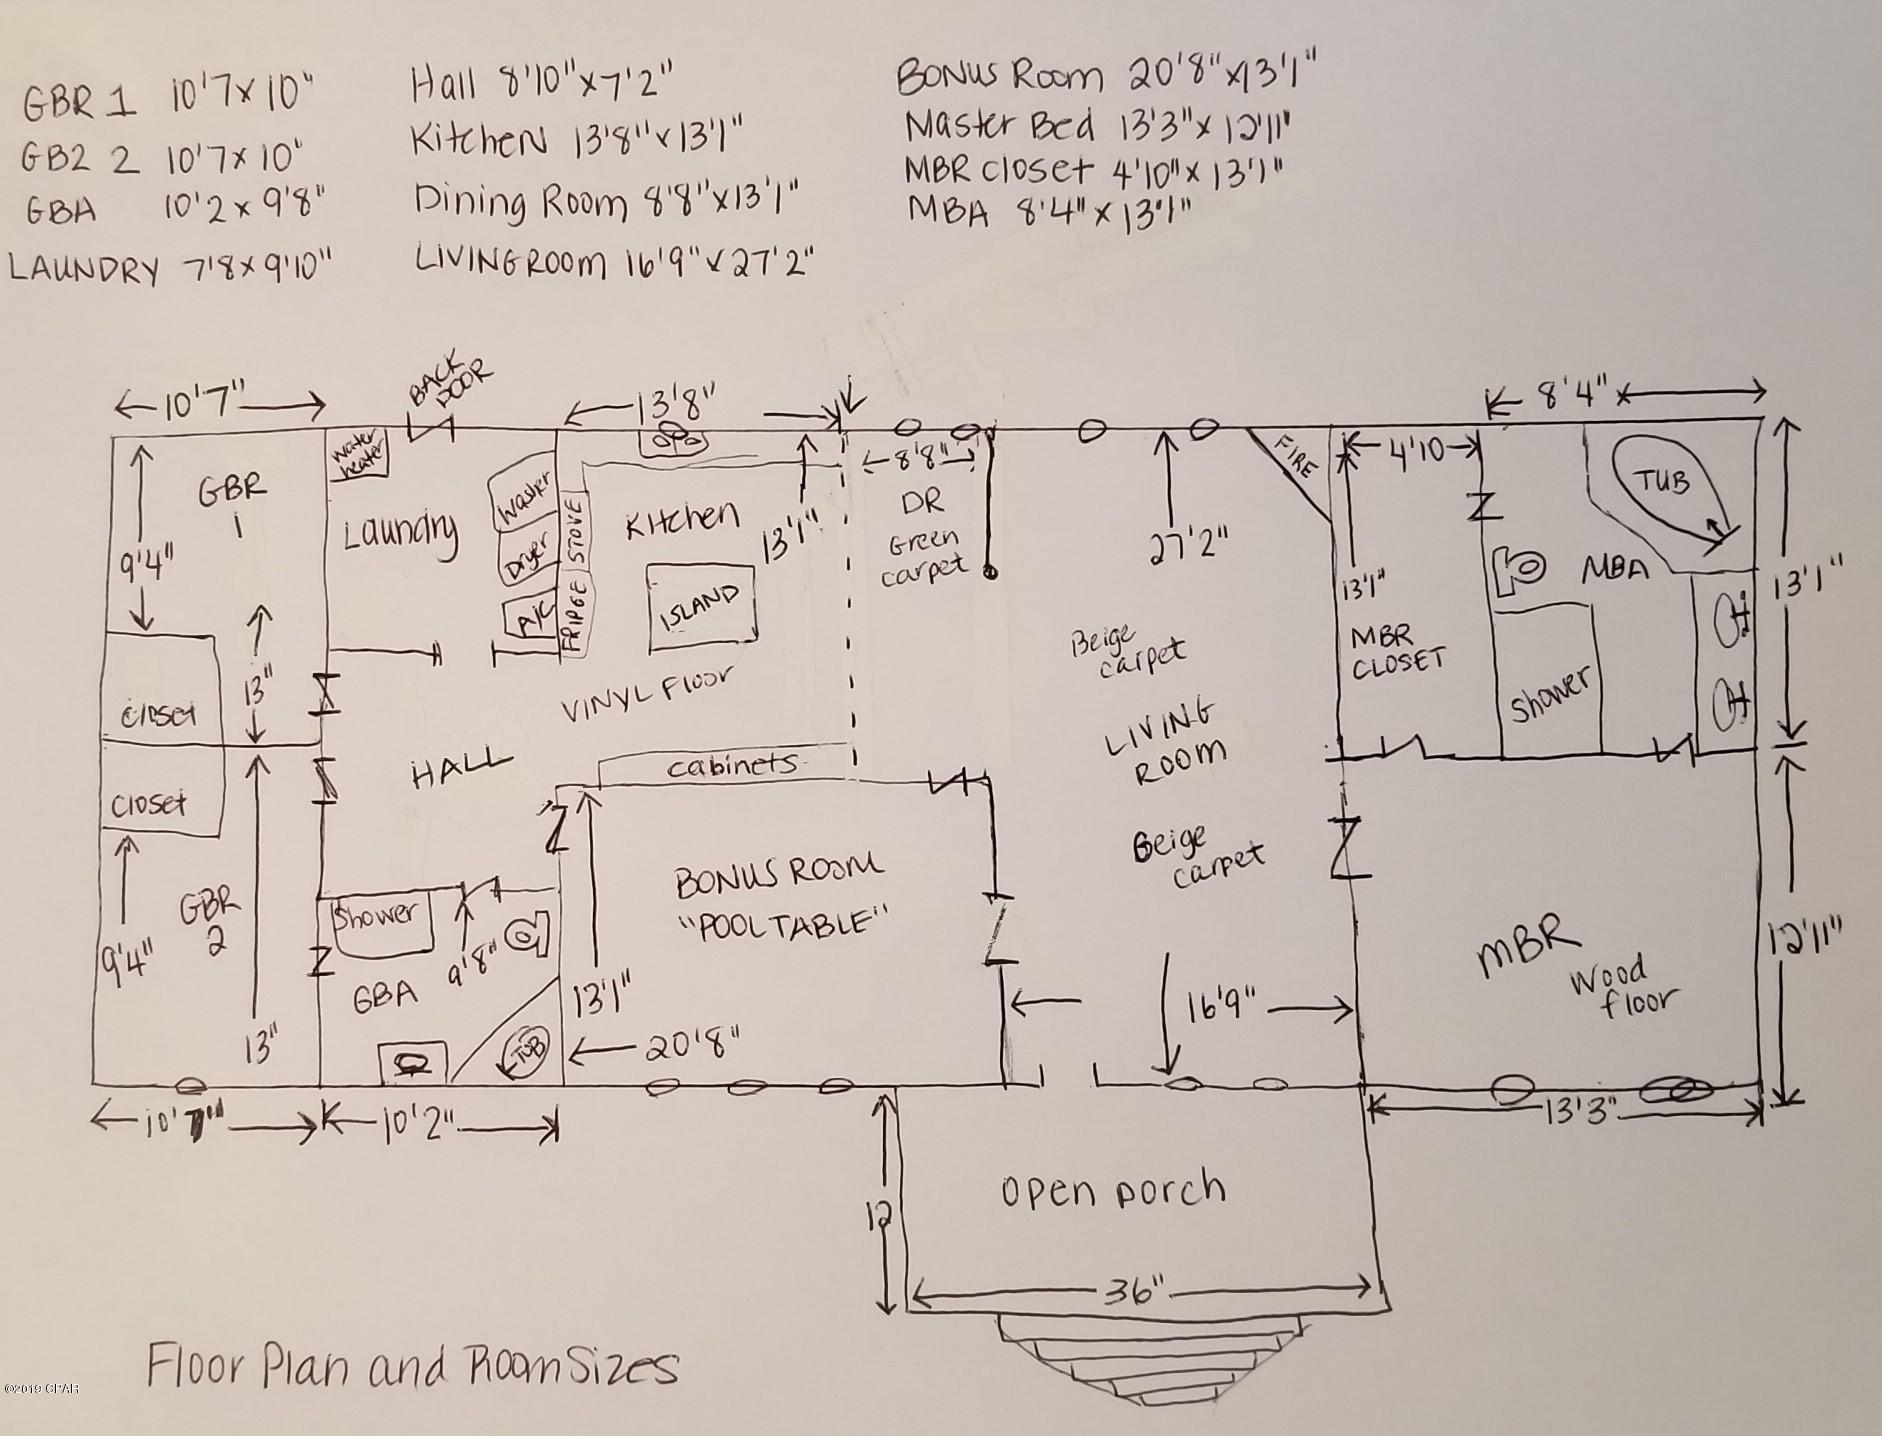 GBR 1 10'7 x 10"
GB2 2 10'7 x 10"
GBA 10'2 x 9'8"
LAUNDRY 7'8 x 9'10"
Hall 8'10" x 7'2"
Kitchen 13'8" x 13'1"
Dining Room 8'8" x 13'1"
LIVINGROOM 16'9" x 27'2"
BONUS Room 20'8" x 13'1"
Master Bed 13'3" x 12'11"
MBR closet 4'10" x 13'1"
MBA 8'4" x 13'1"
10'7"
BACK
DOOR
13'8"
8'4" x
GBR
1
9'4"
13"
closet
closet
GBR
2
9'4"
13"
10'7"
water
heater
Laundry
Washer
Dryer
A/C
STOVE
FRIDGE
Kitchen
13'1"
ISLAND
VINYL Floor
HALL
cabinets
8'8"
DR
Green
carpet
27'2"
Beige
carpet
LIVING
ROOM
Beige
carpet
16'9"
FIRE
4'10
13'1"
MBR
CLOSET
TUB
MBA
Shower
13'1"
Shower
9'8"
GBA
TUB
10'2"
BONUS ROOM
"POOL TABLE"
13'1"
20'8"
MBR
Wood
floor
12'11"
13'3"
open porch
12
36"
Floor Plan and Room Sizes
©2019 CPAR